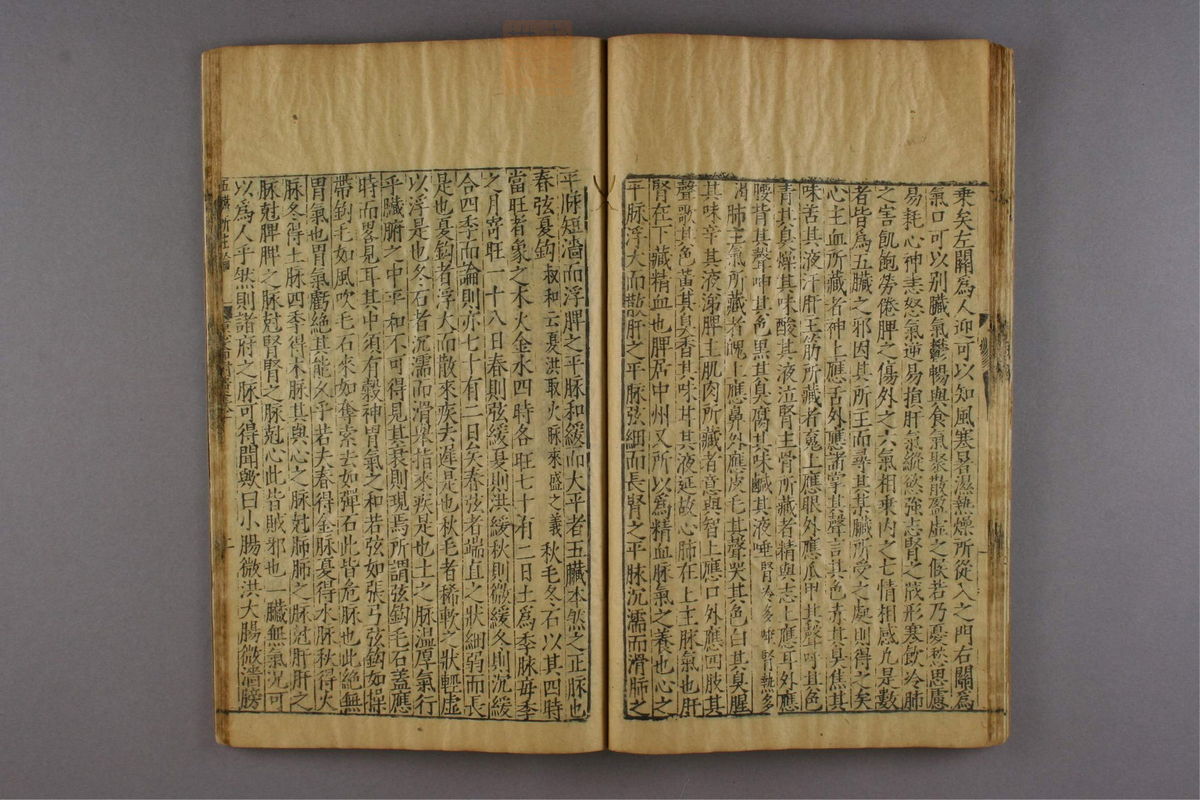 乗矣左關爲人迎可以知風寒暑濕熱燥所從入之門右關爲
氣口可以别臟氣鬱暢與食氣聚散盈虚之候若乃憂愁思慮
易耗心神恚怒氣逆易損肝氣縱慾強志腎之戕形寒飲冷肺
之害飢飽勞倦脾之傷外之六氣相乗内之七情相感凡是數
者皆爲五臟之邪因其所主而尋其某臟所受之處則得之矣
心主血所藏者神上應舌外應諸掌其聲言其色赤其臭焦其
味苦其液汗肝主筋所藏者䰟上應眼外應爪甲其聲呼其色
青其臭燥其味酸其液泣腎主骨所藏者精與志上應耳外應
腰背其聲呻其色黒其臭腐其味鹹其液唾腎冷多唾腎熱多
肺主氣所藏者魄上應鼻外應皮毛其聲哭其色白其臭腥
其味辛其液涕脾主肌肉所藏者意與智上應口外應四肢其
聲歌其色黄其臭香其味甘其液延故心肺在上主脉氣也肝
腎在下藏精血也脾居中州又所以爲精血脉氣之養也心之
平脉浮大而散肝之平脉弦細而長腎之平脉沉濡而滑肺之
平脉短濇而浮脾之平脉和緩而大平者五臟本然之正脉也
春弦夏鈎叔和云夏洪取火脉來盛之義秋毛冬石以其四時
當旺者象之木火金水四時各旺七十有二日土爲季脉毎季
之月寄旺一十八日春則弦緩夏則洪緩秋則微緩冬則沉緩
合四季而論則亦七十有二日矣春弦者端直之狀細弱而長
是也夏鈎者浮大而散來疾去遲是也秋毛者稀軟之狀輕虚
以浮是也冬石者沉濡而滑舉指來疾是也土之脉温厚氣行
乎臟腑之中平和不可得見其衰則現焉所謂弦鈎毛石蓋應
時而畧見耳其中須有穀神胃氣之和若弦如張弓弦鈎如操
帶鈎毛如風吹毛石來如奪索去如彈石此皆危脉也此絶無
胃氣也胃氣虧絶其能久乎若夫春得金脉夏得水脉秋得火
脉冬得土脉四季得木脉其與心之脉尅肺肺之脉尅肝肝之
脉尅脾脾之脉尅腎腎之脉尅心此皆賊邪也一臟無氣况可
以爲人乎然則諸府之脉可得聞歟曰小腸微洪大腸微濇膀